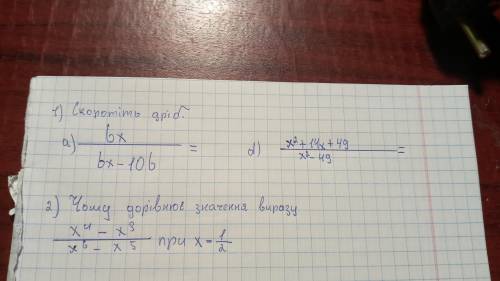 1) Скоротіть дріб.
а) bx / bx - 10b = d) x² + 14x + 49 / x² - 49 =
2) Чому дорівнює значення виразу
x⁴ - x³ / x⁶ - x⁵ при x = 1/2